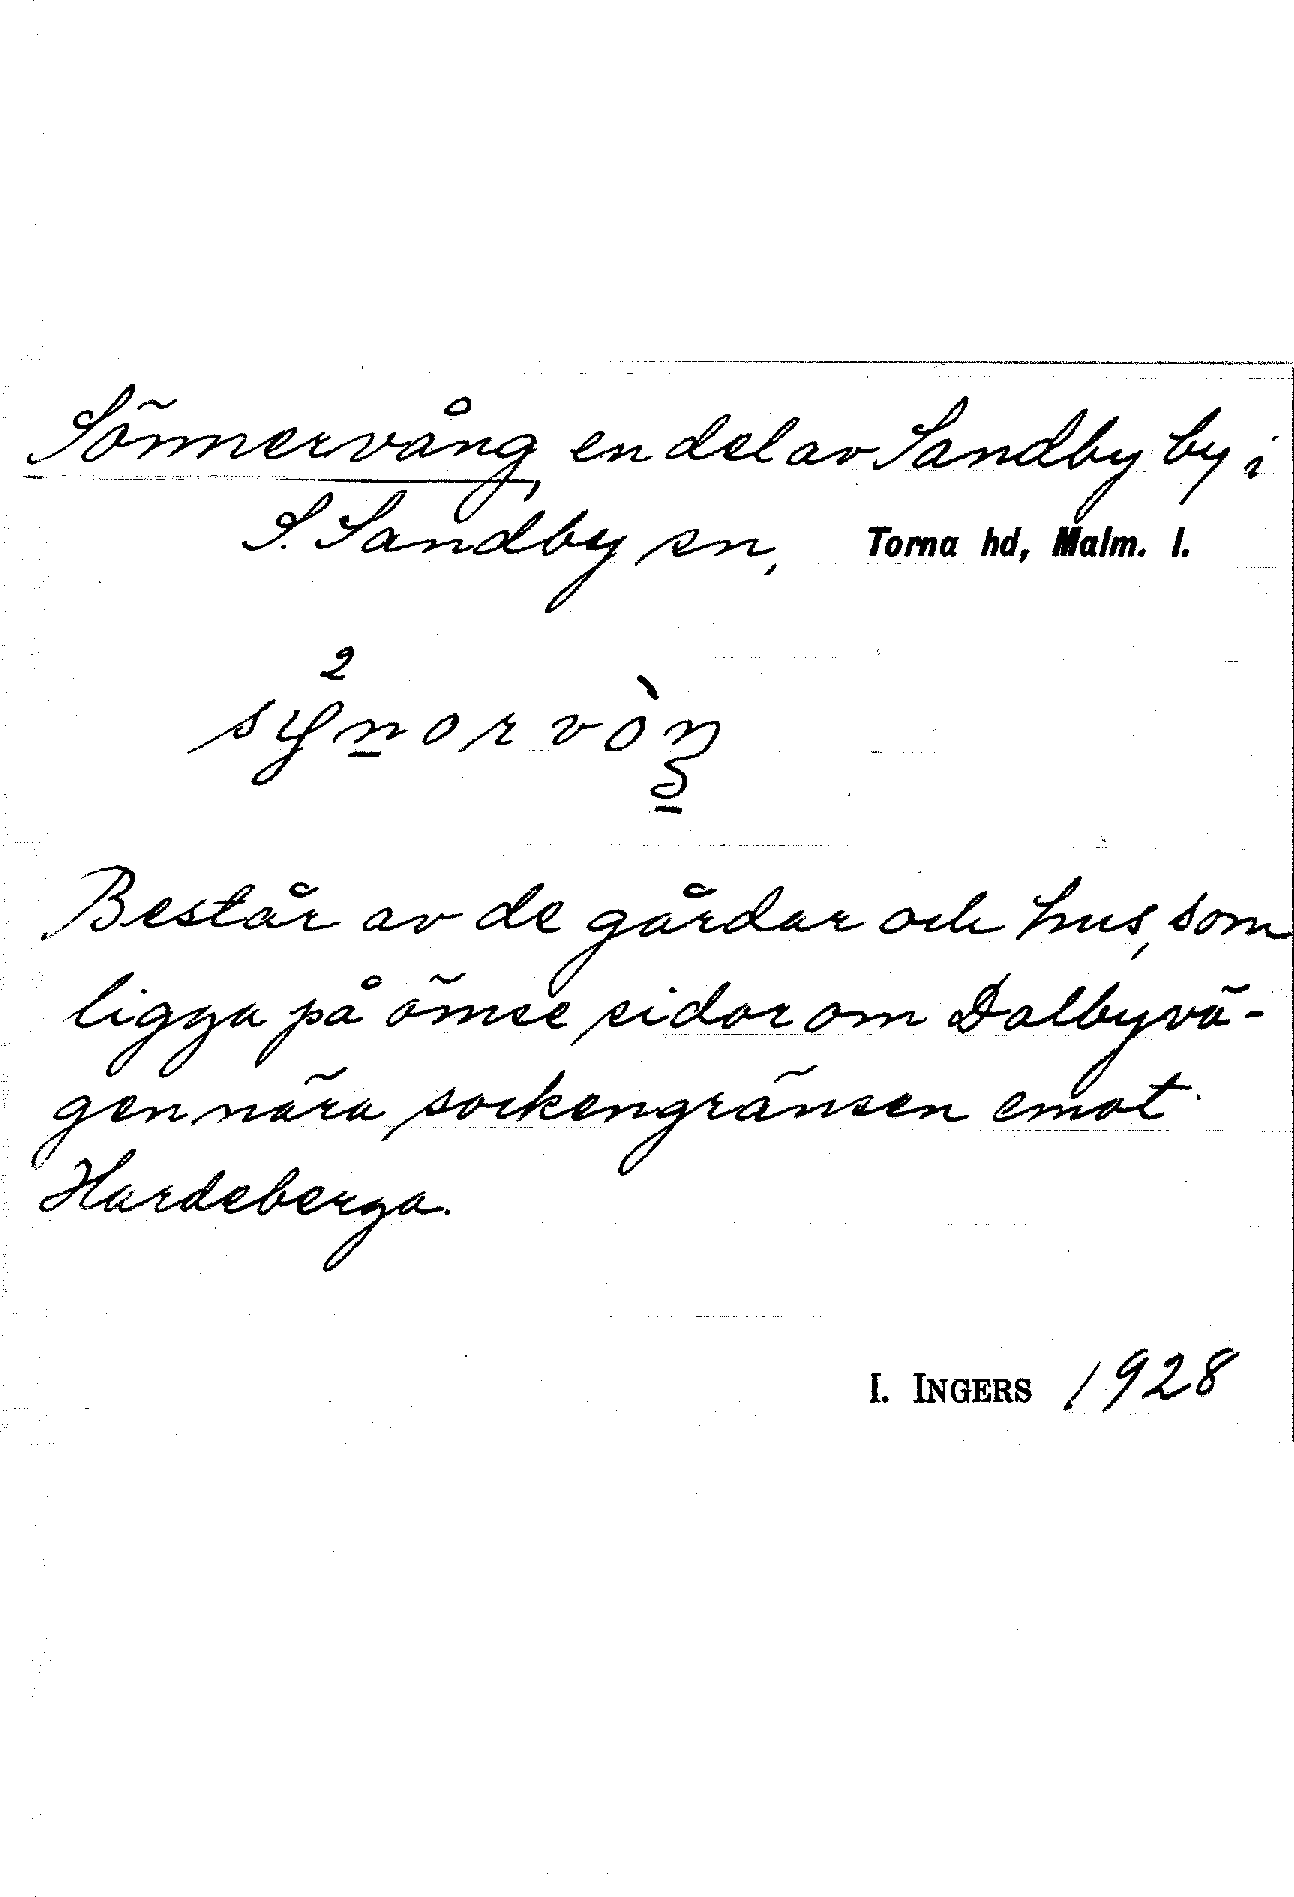 Sönnervång en del av Sandby by i
S. Sandby sn, Torna hd, Malm. l.
Består av de gårdar och hus, som
ligga på ömse sidor om Dalbyvä-
gen nära sockengränsen emot
Hardeberga.
I. INGERS 1928